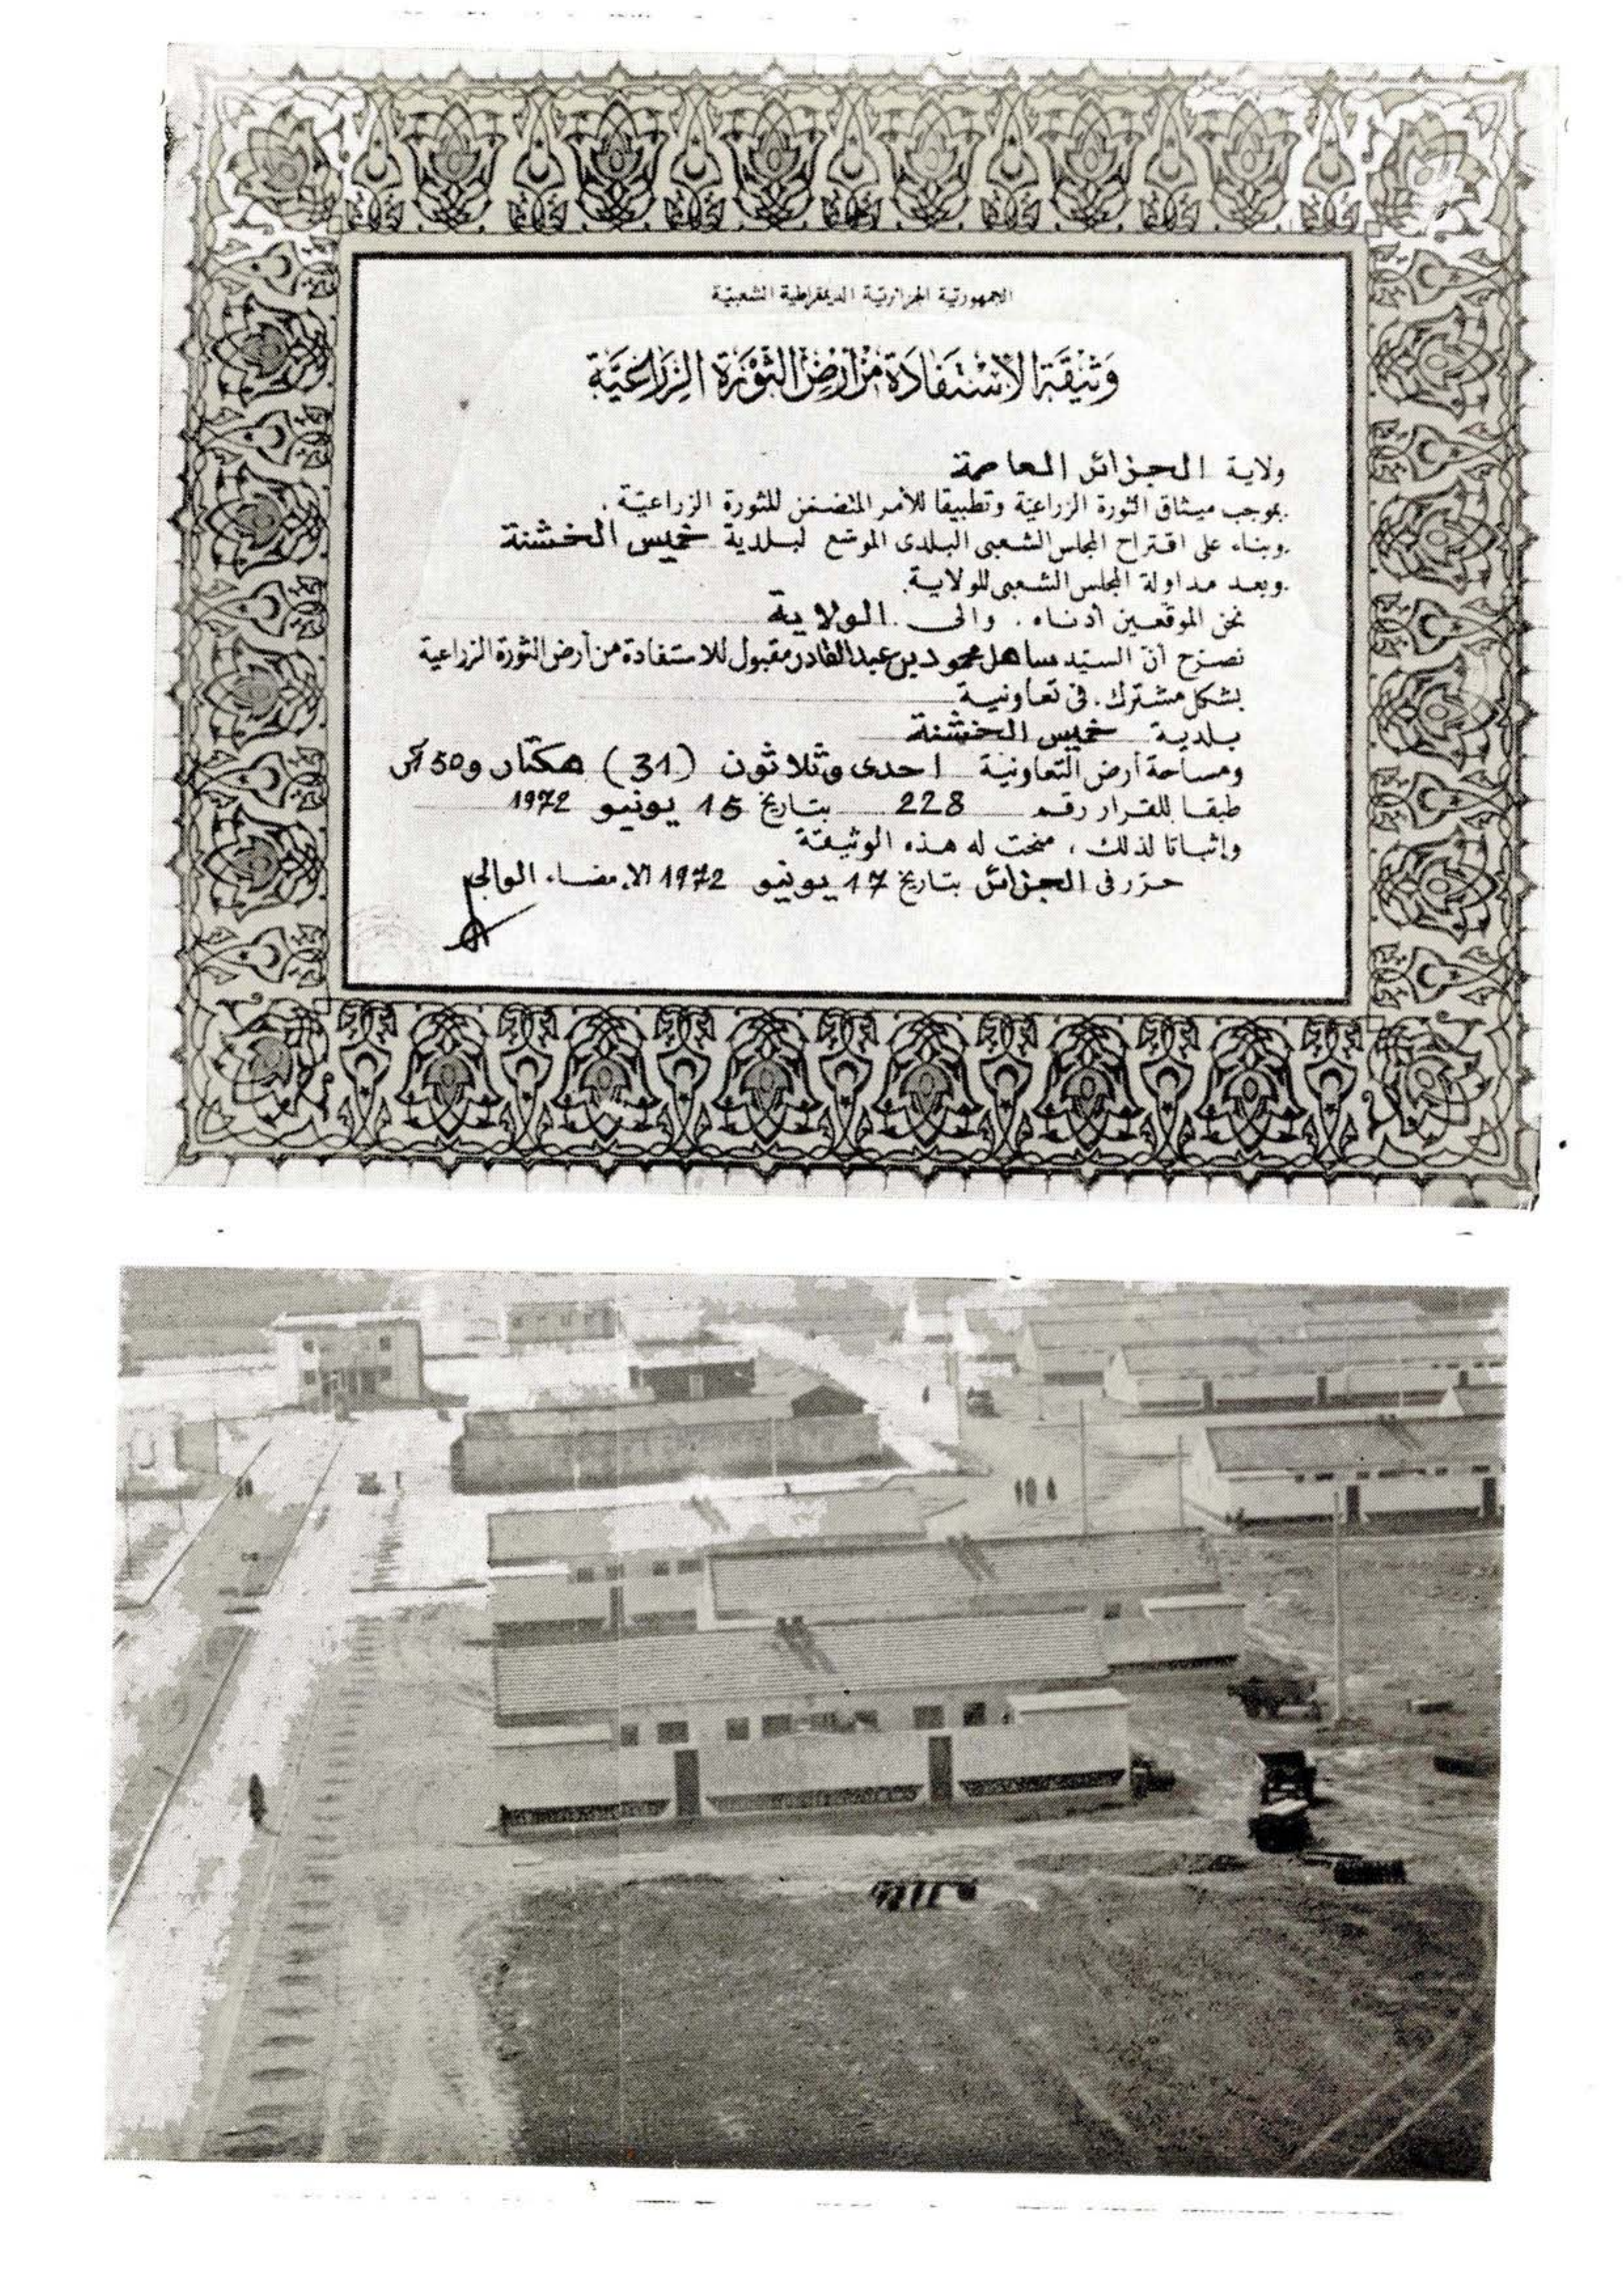 الجمهورية الجزائرية الديمقراطية الشعبية
وَثيقَة الاسْتفَادَة مِن أرضِ الثَّورَة الزِّرَاعيَّة
ولاية الجزائر العاصمة
.بموجب ميثاق الثورة الزراعية وتطبيقا للأمر المتضمن للثورة الزراعية .
.وبناء على اقتراح المجلس الشعبي البلدى الموسع لبلدية خميس الخشنة
.وبعد مداولة المجلس الشعبي للولاية.
نحن الموقعين أدناه . والى . الولاية
نصرح أن السيد ساهل محمود بن عبد القادر مقبول للاستفادة من أرض الثورة الزراعية
بشكل مشترك . في تعاونية
بلدية خميس الخشنة
ومساحة أرض التعاونية احدى وثلاثون (31) هكتار و50 آر
طبقا للقرار رقم 228 بتاريخ 15 يونيو 1972
وإثباتا لذلك ، منحت له هذه الوثيقة
حرر في الجزائر بتاريخ 17 يونيو 1972 الامضاء الوالي